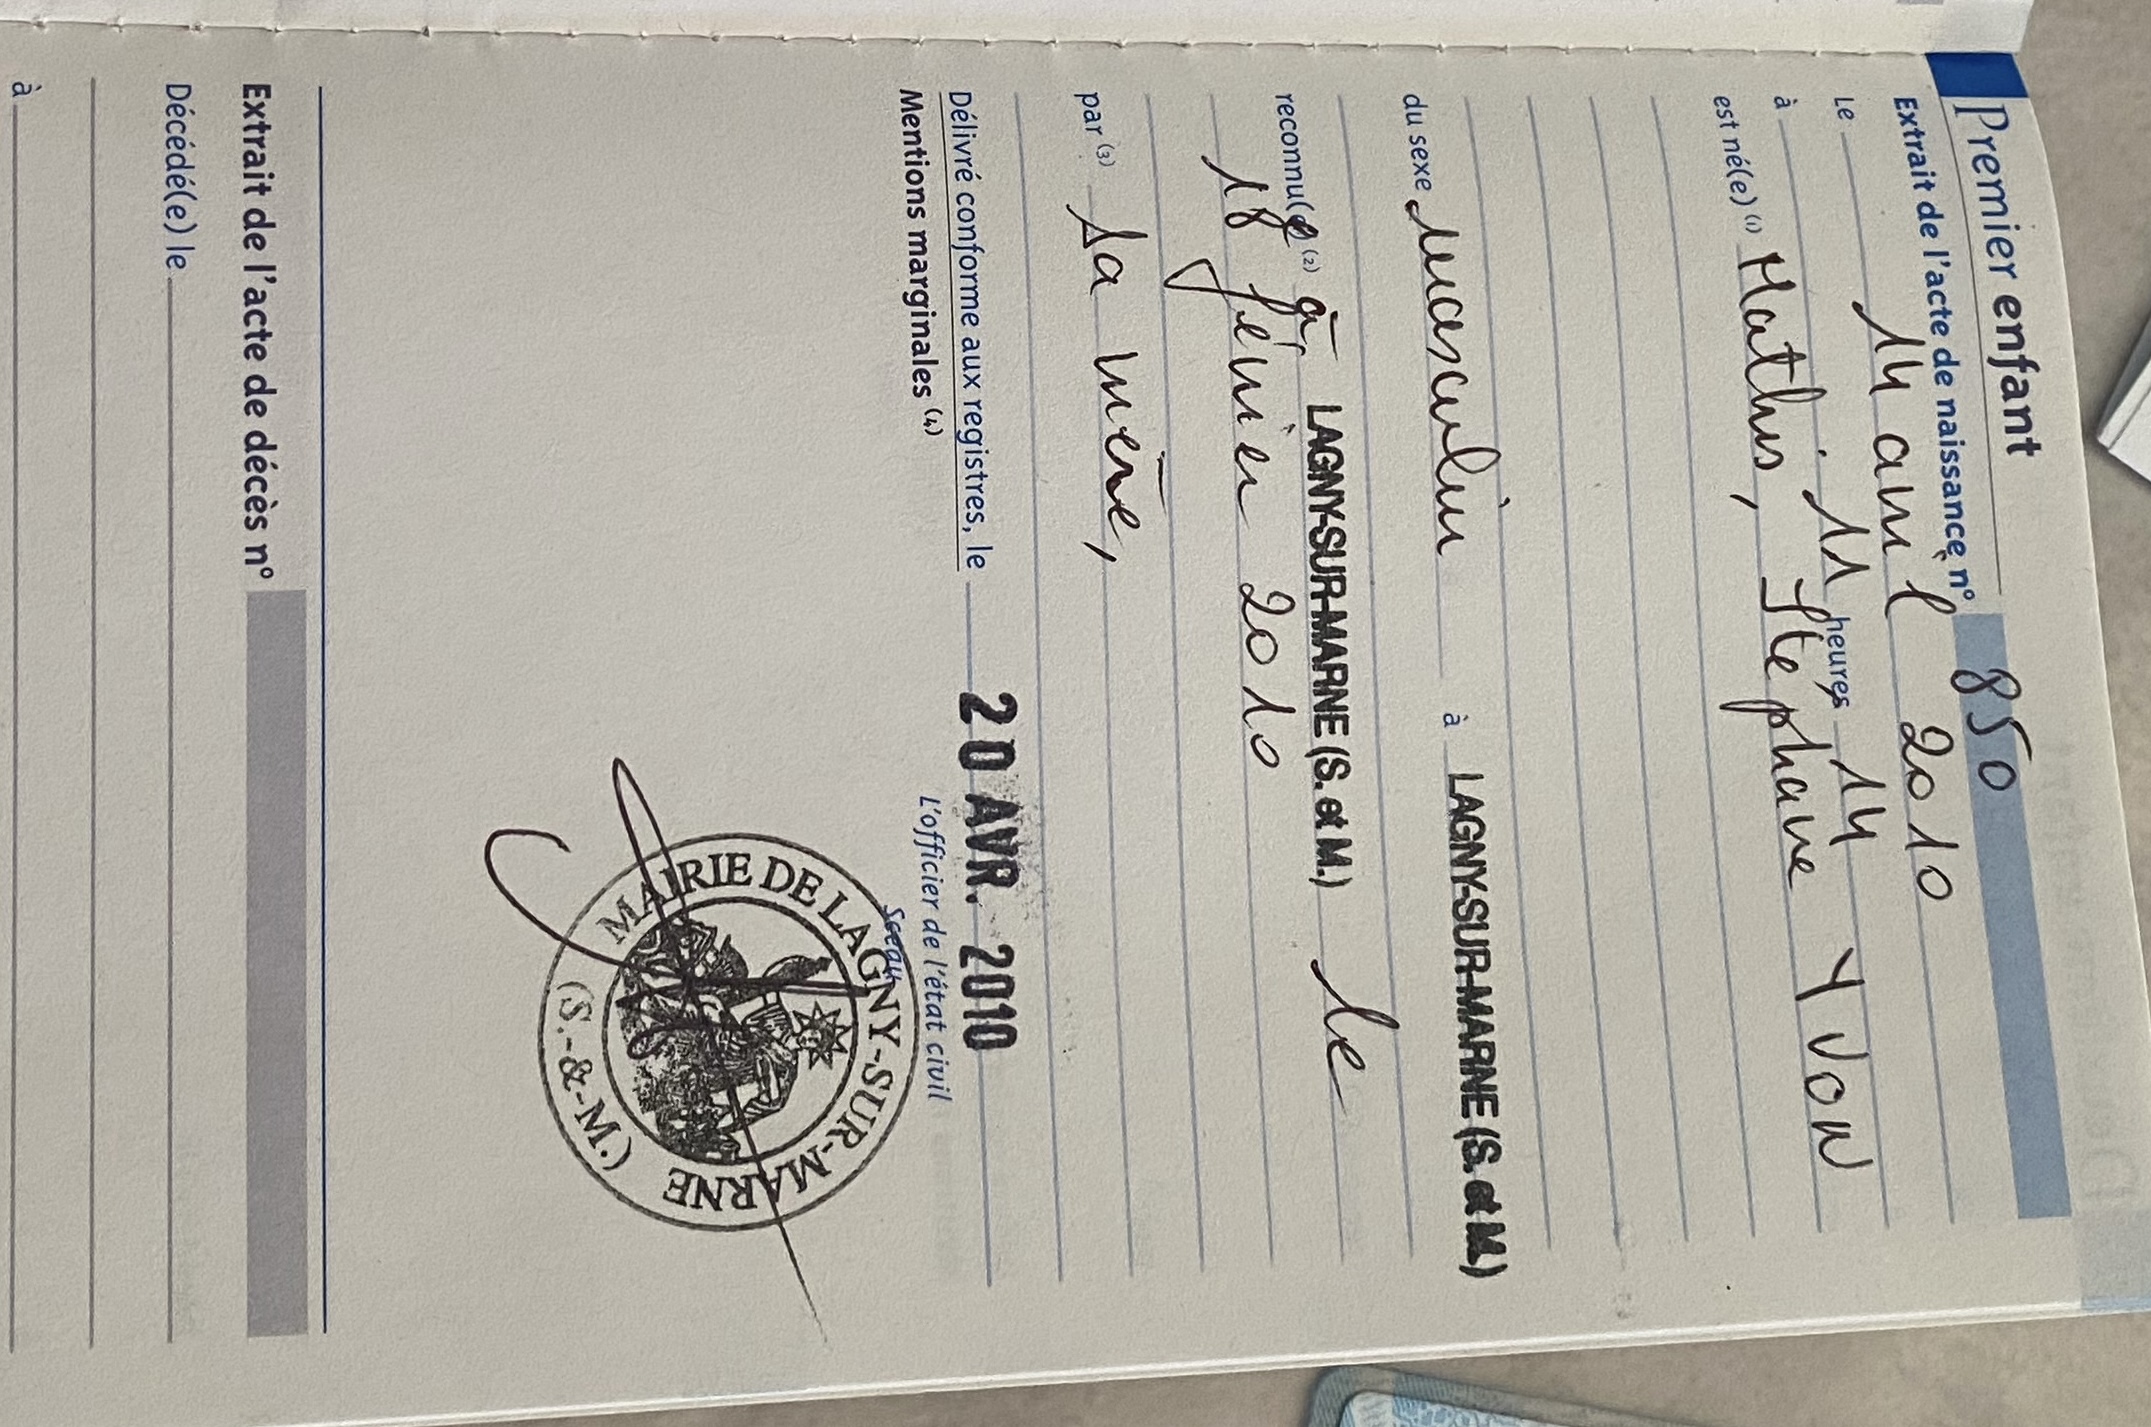 Premier enfant
Extrait de l'acte de naissance n° 850
Le 14 avril 2010
à 11 heures 14
est né(e) (1) Mathis, Stéphane YVON
du sexe masculin à LAGNY-SUR-MARNE (S. et M.)
reconnu(e) (2) à LAGNY-SUR-MARNE (S. et M.) le
18 février 2010
par (3) la mère,
Délivré conforme aux registres, le 20 AVR. 2010
Mentions marginales (4)
L'officier de l'état civil
Sceau
MAIRIE DE LAGNY-SUR-MARNE
(S.-&-M.)
Extrait de l'acte de décès n°
Décédé(e) le
à